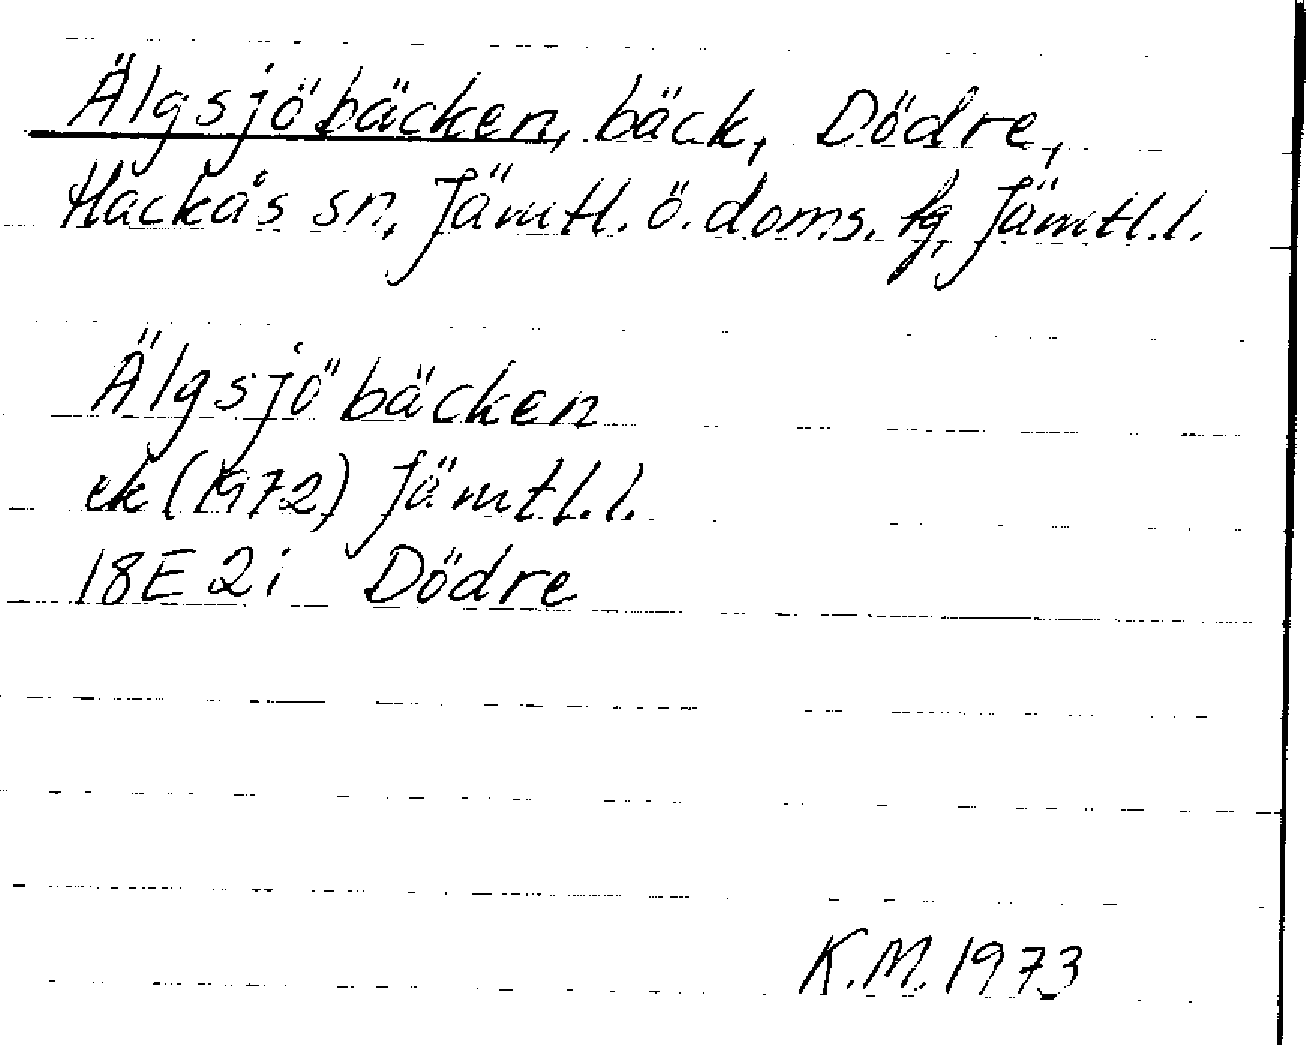 Älgsjöbäcken, bäck, Dödre,
Hackås sn, Jämtl. ö. doms. fg, Jämtl.l.
Älgsjöbäcken
ek (1972) Jämtl.l.
18E 2i Dödre
K.M. 1973